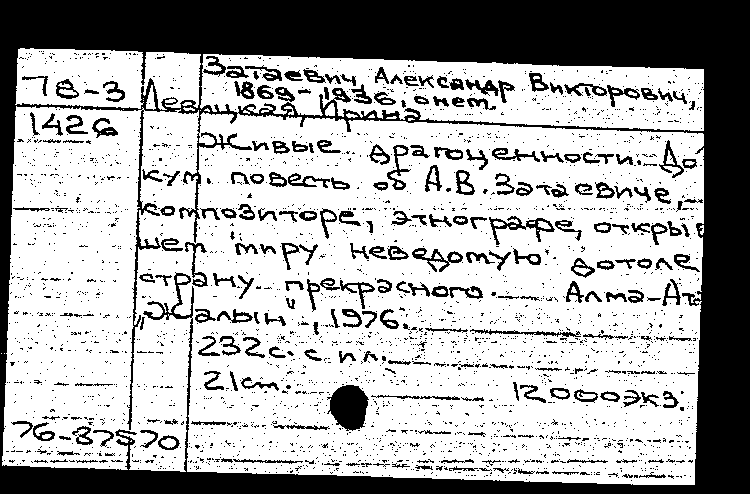 Затаевич, Александр Викторович,
78-3 1869-1936, о нем.
Левицкая, Ирина
1426
Живые драгоценности. До
кум. повесть об А.В. Затаевиче,
композиторе, этнографе, откры
шем миру неведомую дотоле
страну прекрасного. Алма-Ат
„Жалын“, 1976.
232с. с ил.
21см. 12000экз.
76-37570